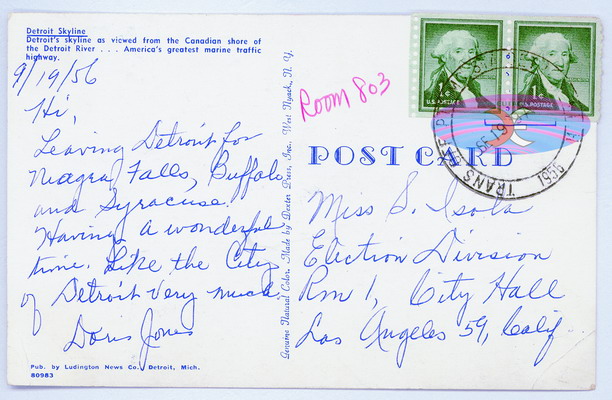 Detroit Skyline
Detroit's skyline as viewed from the Canadian shore of
the Detroit River . . . America's greatest marine traffic
highway.
9/19/56
Hi,
Leaving Detroit for
Niagra Falls, Buffalo
and Syracuse.
Having a wonderful
time. Like the City
of Detroit very much.
Doris Jones
Pub. by Ludington News Co. Detroit, Mich.
80983
Genuine Natural Color. Made by Dexter Press, Inc., West Nyack, N. Y.
Room 803
1¢
U.S. POSTAGE
1¢
U.S. POSTAGE
POST CARD
TRANS
1956
Miss S. Isola
Election Division
Rm 1, City Hall
Los Angeles 59, Calif.